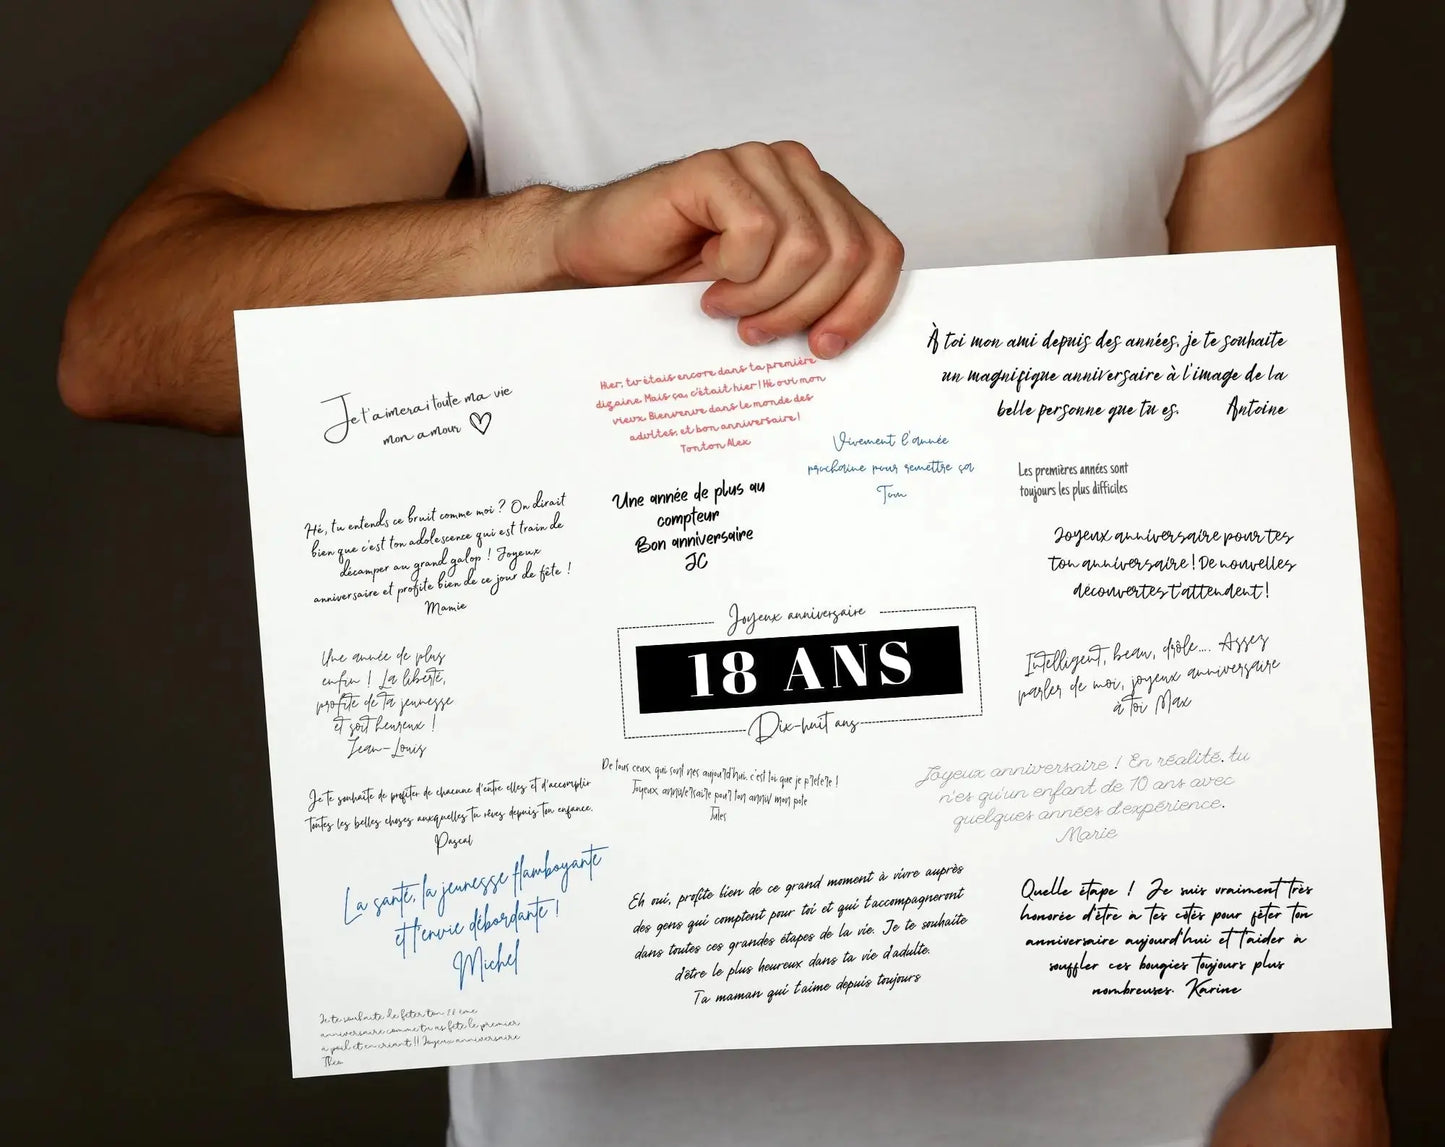 Je t'aimerai toute ma vie
mon amour
Hier, tu étais encore dans ta première
dizaine. Mais ça, c'était hier ! Hé oui mon
vieux. Bienvenue dans le monde des
adultes, et bon anniversaire !
Tonton Alex
À toi mon ami depuis des années, je te souhaite
un magnifique anniversaire à l'image de la
belle personne que tu es. Antoine
Vivement l'année
prochaine pour remettre ça
Tom
Les premières années sont
toujours les plus difficiles
Hé, tu entends ce bruit comme moi ? On dirait
bien que c'est ton adolescence qui est train de
décamper au grand galop ! Joyeux
anniversaire et profite bien de ce jour de fête !
Mamie
Une année de plus au
compteur
Bon anniversaire
JC
Joyeux anniversaire pour tes
ton anniversaire ! De nouvelles
découvertes t'attendent !
Joyeux anniversaire
18 ANS
Dix-huit ans
Une année de plus
enfin ! La liberté,
profite de ta jeunesse
et soit heureux !
Jean-Louis
Intelligent, beau, drôle.... Assez
parler de moi, joyeux anniversaire
à toi Max
Je te souhaite de profiter de chacune d'entre elles et d'accomplir
toutes les belles choses auxquelles tu rêves depuis ton enfance.
Pascal
De tous ceux qui sont nés aujourd'hui, c'est toi que je préfère !
Joyeux anniversaire pour ton anniv mon pote
Jules
Joyeux anniversaire ! En réalité, tu
n'es qu'un enfant de 10 ans avec
quelques années d'expérience.
Marie
La santé, la jeunesse flamboyante
et l'envie débordante !
Michel
Eh oui, profite bien de ce grand moment à vivre auprès
des gens qui comptent pour toi et qui t'accompagneront
dans toutes ces grandes étapes de la vie. Je te souhaite
d'être le plus heureux dans ta vie d'adulte.
Ta maman qui t'aime depuis toujours
Quelle étape ! Je suis vraiment très
honorée d'être à tes côtés pour fêter ton
anniversaire aujourd'hui et t'aider à
souffler ces bougies toujours plus
nombreuses. Karine
Je te souhaite de fêter ton 18 ème
anniversaire comme tu as fêté le premier,
à poil et en criant !! Joyeux anniversaire
Théo